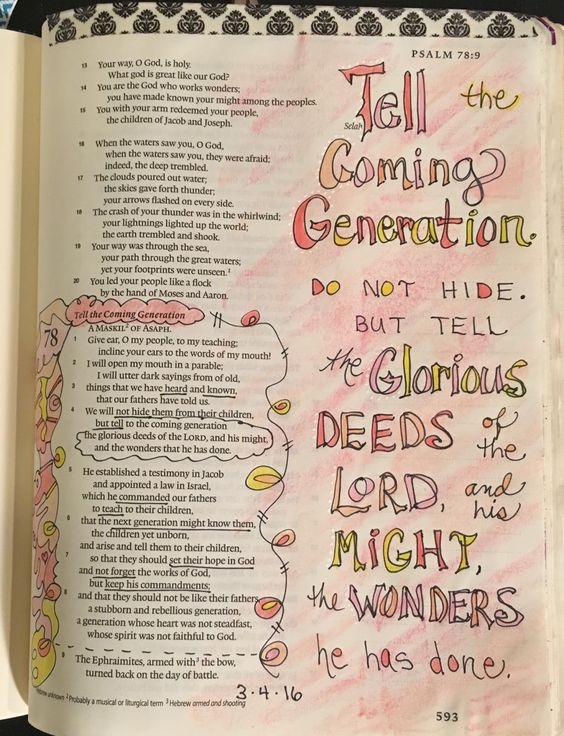 PSALM 78:9
13 Your way, O God, is holy.
What god is great like our God?
14 You are the God who works wonders;
you have made known your might among the peoples.
15 You with your arm redeemed your people,
the children of Jacob and Joseph. Selah
16 When the waters saw you, O God,
when the waters saw you, they were afraid;
indeed, the deep trembled.
17 The clouds poured out water;
the skies gave forth thunder;
your arrows flashed on every side.
18 The crash of your thunder was in the whirlwind;
your lightnings lighted up the world;
the earth trembled and shook.
19 Your way was through the sea,
your path through the great waters;
yet your footprints were unseen.1
20 You led your people like a flock
by the hand of Moses and Aaron.
Tell the Coming Generation
78 A MASKIL2 OF ASAPH.
1 Give ear, O my people, to my teaching;
incline your ears to the words of my mouth!
2 I will open my mouth in a parable;
I will utter dark sayings from of old,
3 things that we have heard and known,
that our fathers have told us.
4 We will not hide them from their children,
but tell to the coming generation
the glorious deeds of the LORD, and his might,
and the wonders that he has done.
5 He established a testimony in Jacob
and appointed a law in Israel,
which he commanded our fathers
to teach to their children,
6 that the next generation might know them,
the children yet unborn,
and arise and tell them to their children,
7 so that they should set their hope in God
and not forget the works of God,
but keep his commandments;
8 and that they should not be like their fathers,
a stubborn and rebellious generation,
a generation whose heart was not steadfast,
whose spirit was not faithful to God.
9 The Ephraimites, armed with3 the bow,
turned back on the day of battle.
unknown 2 Probably a musical or liturgical term 3 Hebrew armed and shooting
593
Tell the
Coming
Generation.
DO NOT HIDE.
BUT TELL
the Glorious
DEEDS of the
LORD, and his
MIGHT,
the WONDERS
he has done.
3·4·16